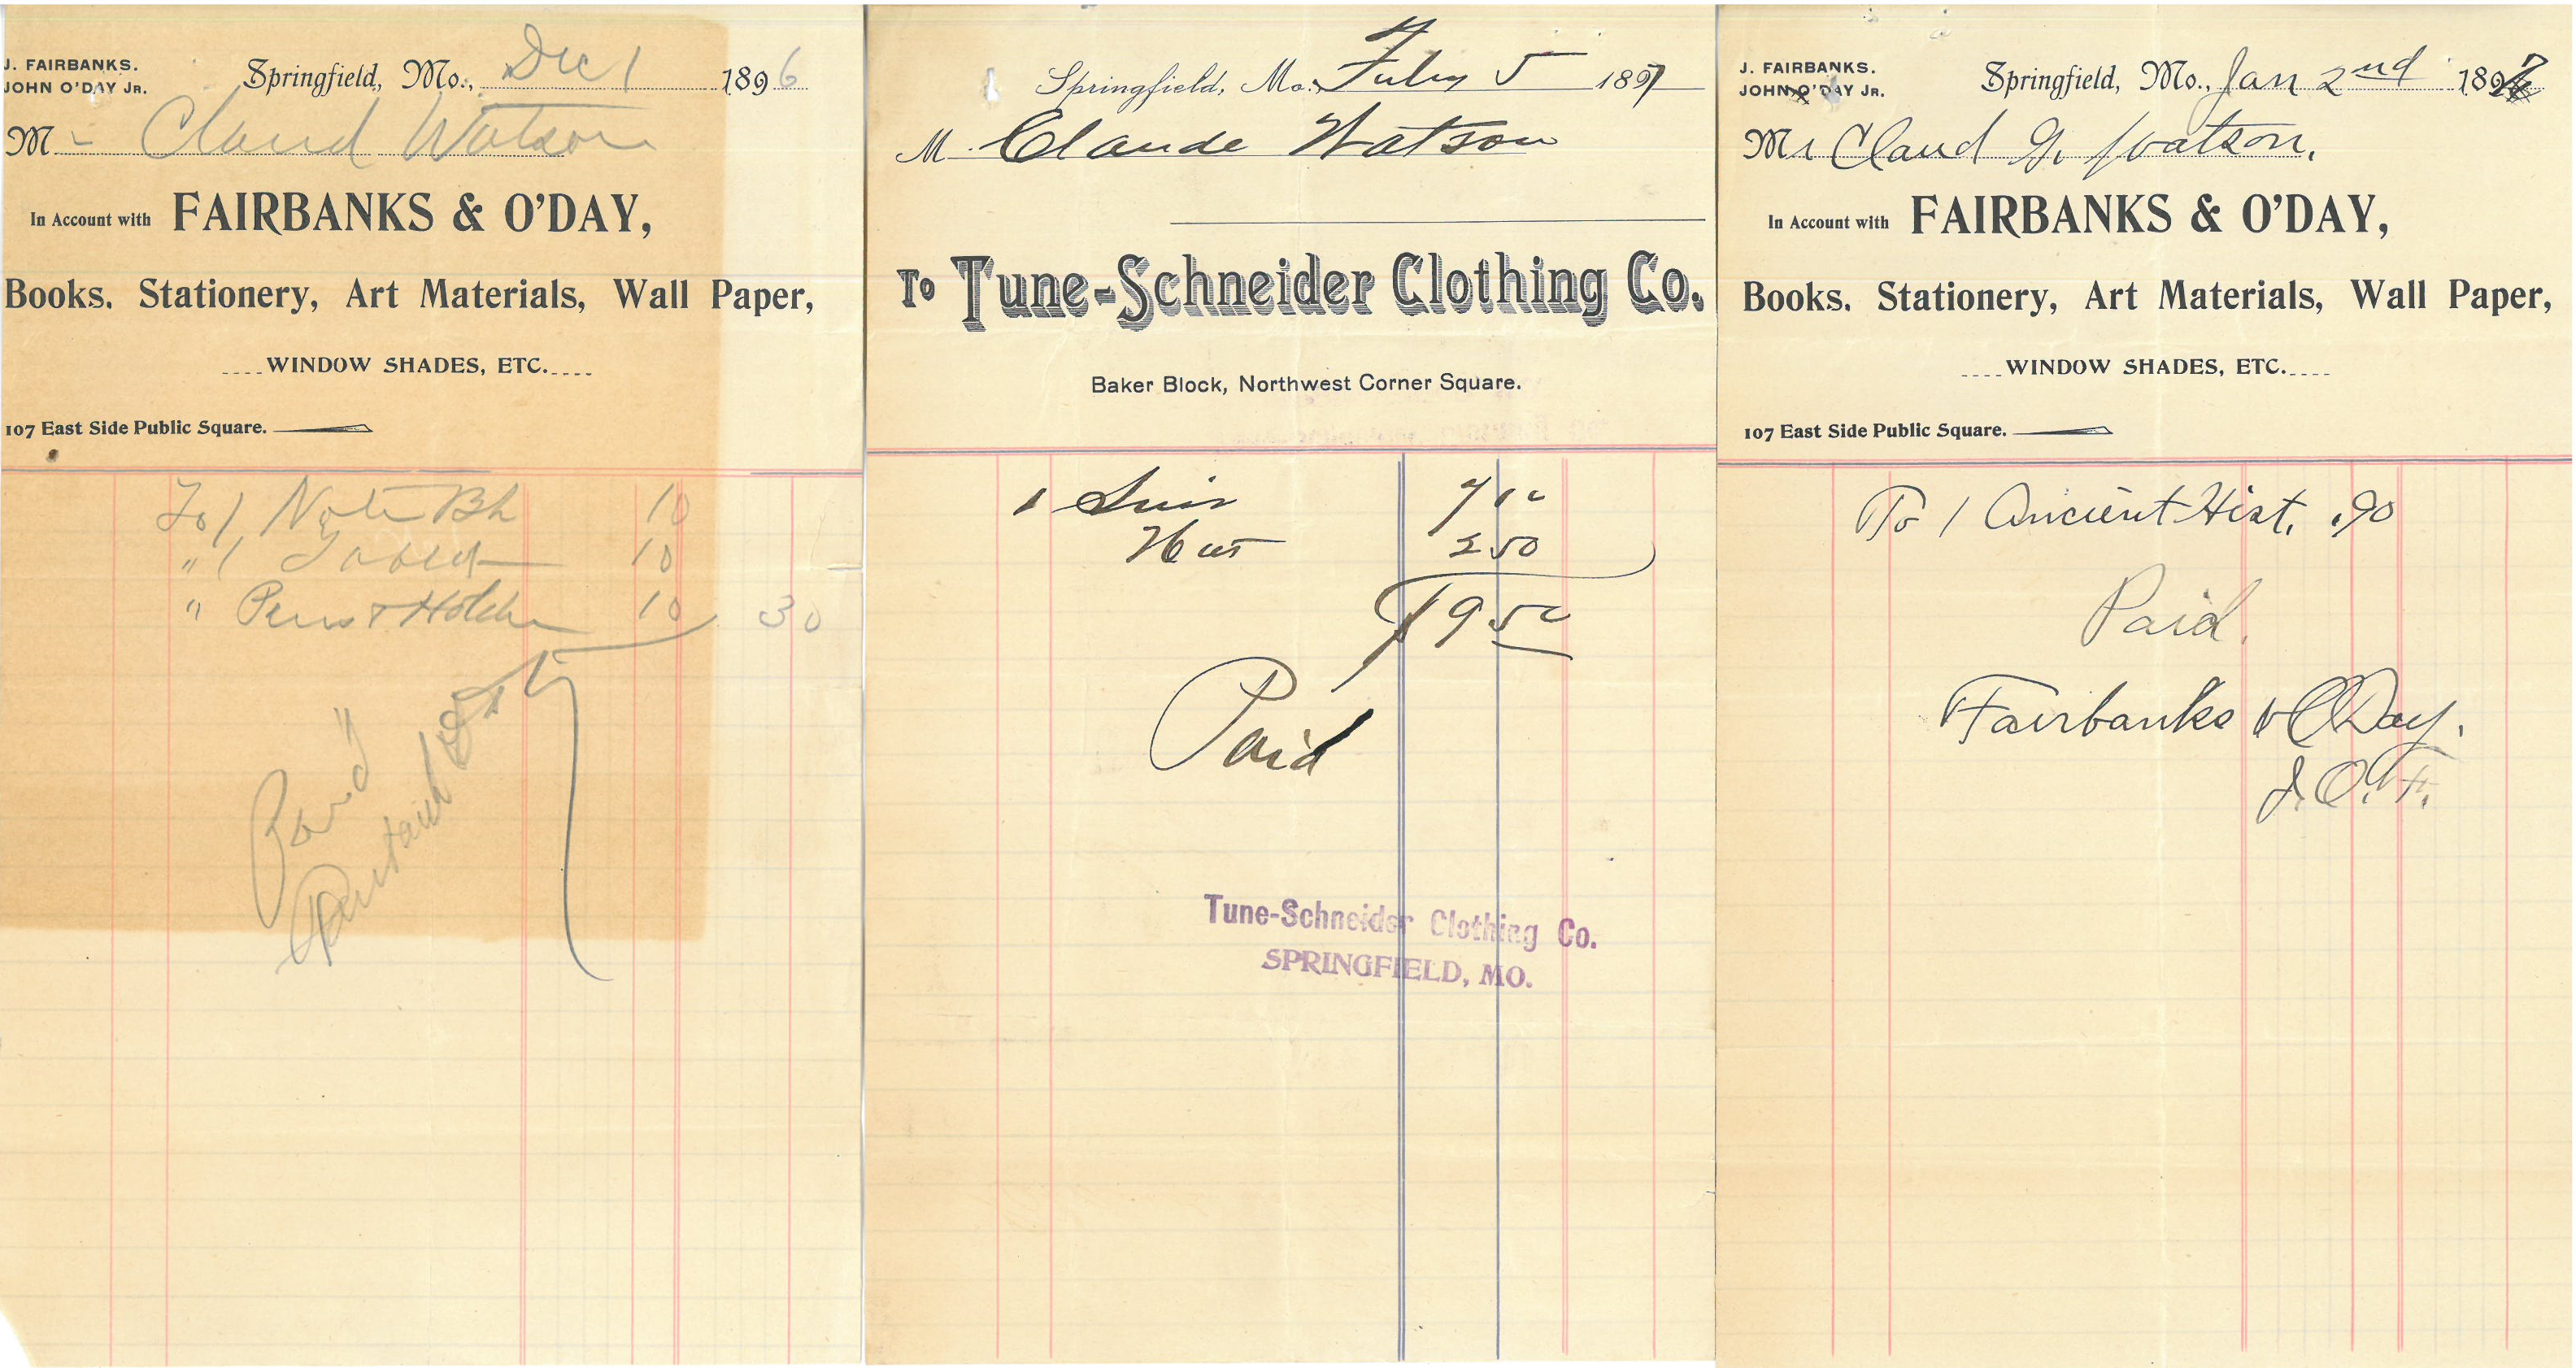 J. FAIRBANKS.
JOHN O'DAY JR.
Springfield, Mo., Dec 1 1896
M - Claud Watson
In Account with FAIRBANKS & O'DAY,
Books. Stationery, Art Materials, Wall Paper,
WINDOW SHADES, ETC.
107 East Side Public Square.
To 1 Note Bk 10
" 1 Tablet 10
" Pens & Holder 10 30
Paid
Springfield, Mo. 5 1897
M Claude Watson
To Tune-Schneider Clothing Co.
Baker Block, Northwest Corner Square.
1 Suit 7 00
Hat 2 50
$9 50
Paid
Tune-Schneider Clothing Co.
SPRINGFIELD, MO.
J. FAIRBANKS.
JOHN O'DAY JR.
Springfield, Mo., Jan 2nd 1897
Mr Claud G. Watson.
In Account with FAIRBANKS & O'DAY,
Books. Stationery, Art Materials, Wall Paper,
WINDOW SHADES, ETC.
107 East Side Public Square.
To 1 Ancient Hist. .90
Paid.
Fairbanks & O'Day.